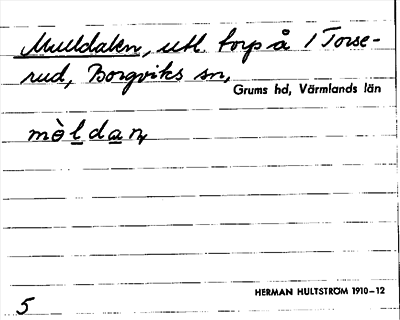 Mulldalen, utl. torp å 1 Torse-
rud, Borgviks sn,
Grums hd, Värmlands län
mòldaṇ
HERMAN HULTSTRÖM 1910-12
5